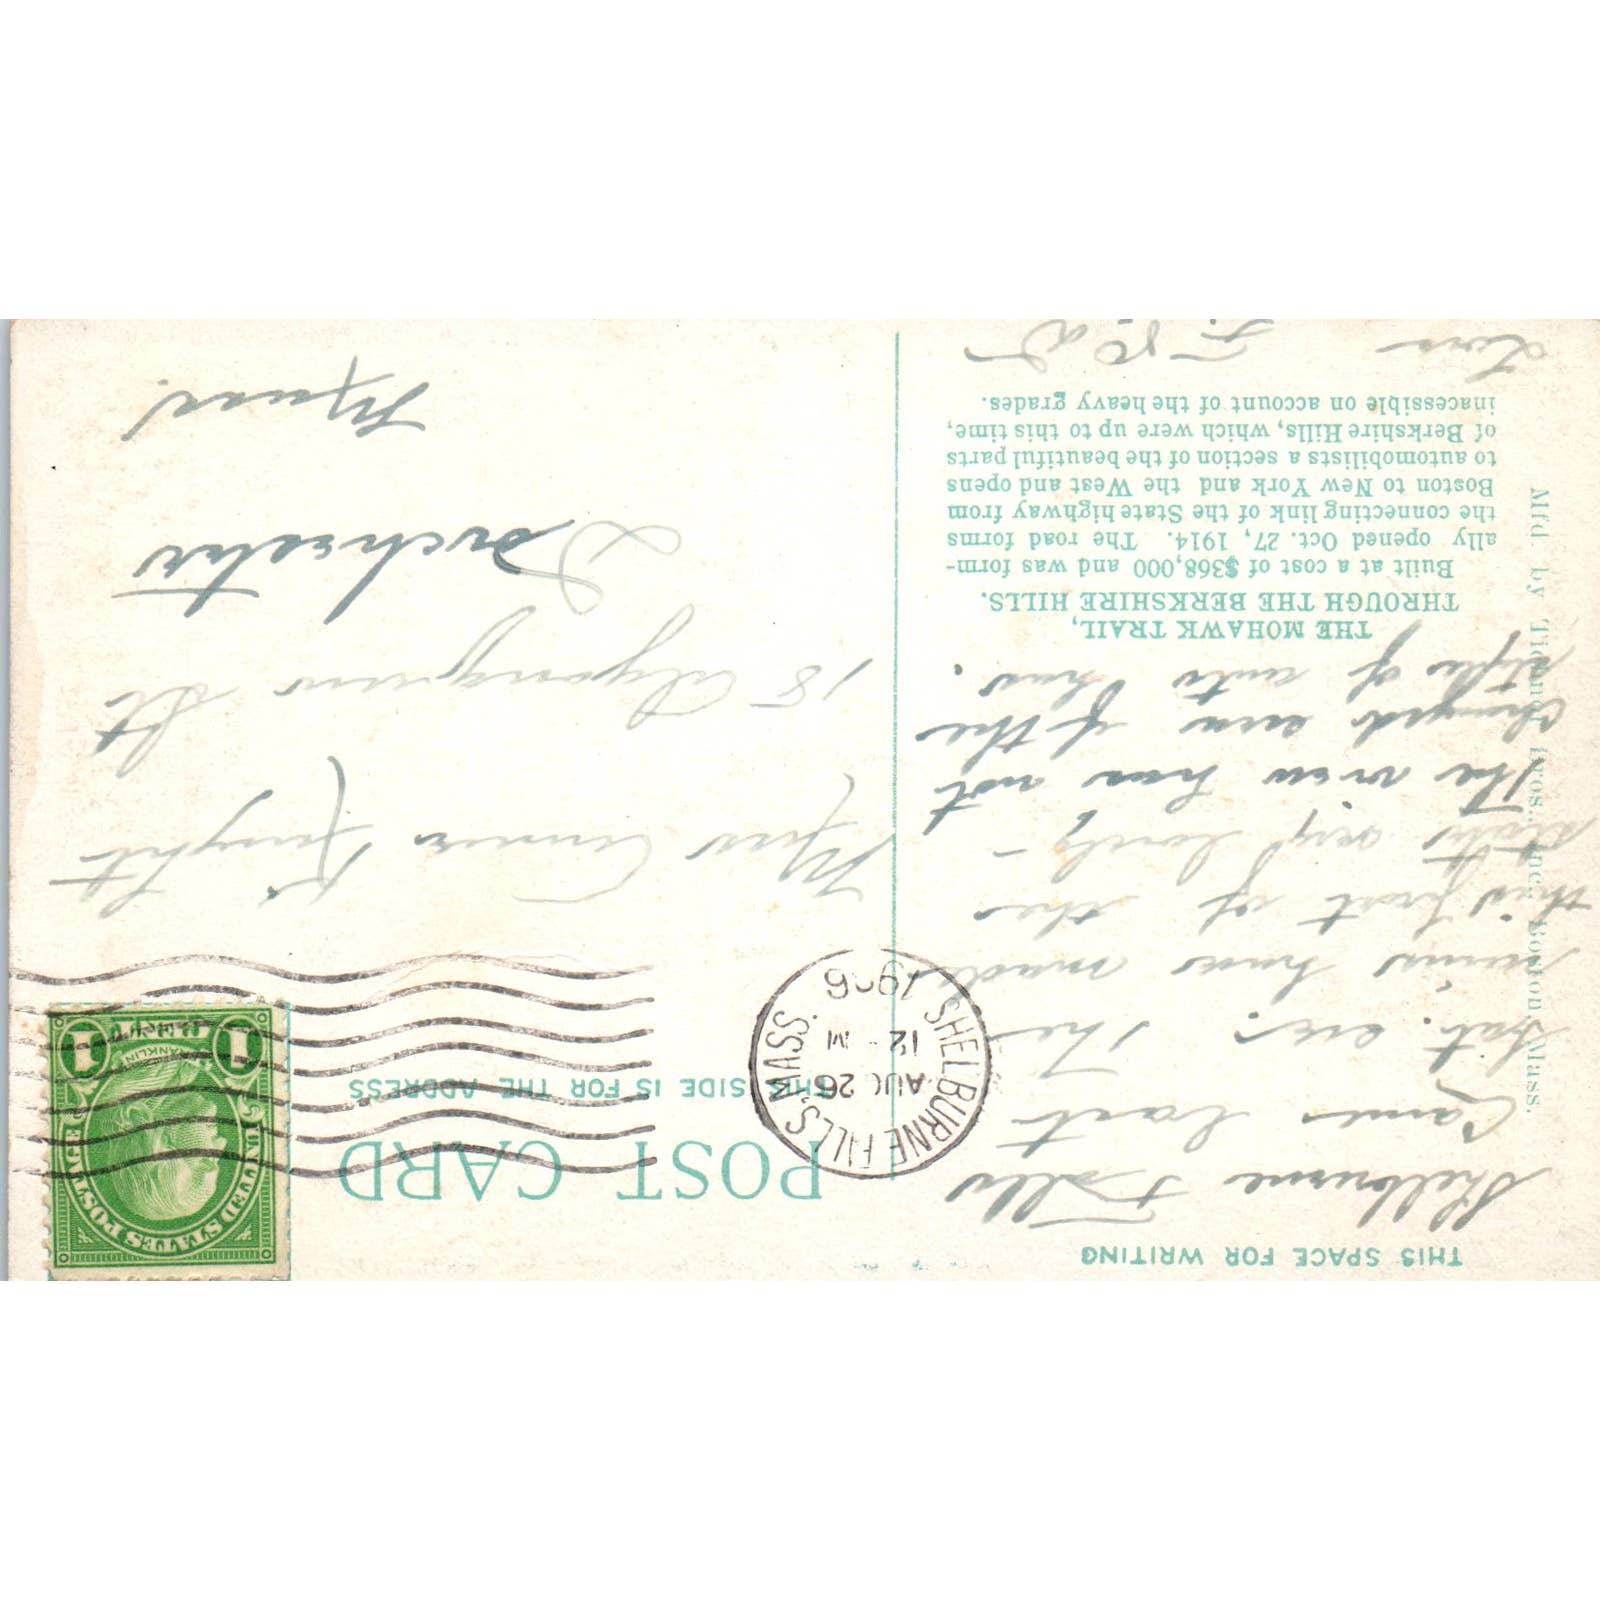 THIS SPACE FOR WRITING
Shelburne Falls
Came last
Sat. eve. The
rains have made
this part of the
state very lovely –
The view has not
changed even if the
style of auto has.
THE MOHAWK TRAIL,
THROUGH THE BERKSHIRE HILLS.
Built at a cost of $368,000 and was form-
ally opened Oct. 27, 1914. The road forms
the connecting link of the State highway from
Boston to New York and the West and opens
to automobilists a section of the beautiful parts
of Berkshire Hills, which were up to this time,
inacessible on account of the heavy grades.
Love –
Mfd. by Tichnor Bros., Inc., Boston, Mass.
POST CARD
THIS SIDE IS FOR THE ADDRESS
SHELBURNE FALLS MASS.
AUG 26
12 M
UNITED STATES POSTAGE
FRANKLIN
1 1
Miss Annie Knight
18 St
Dorchester
Mass.